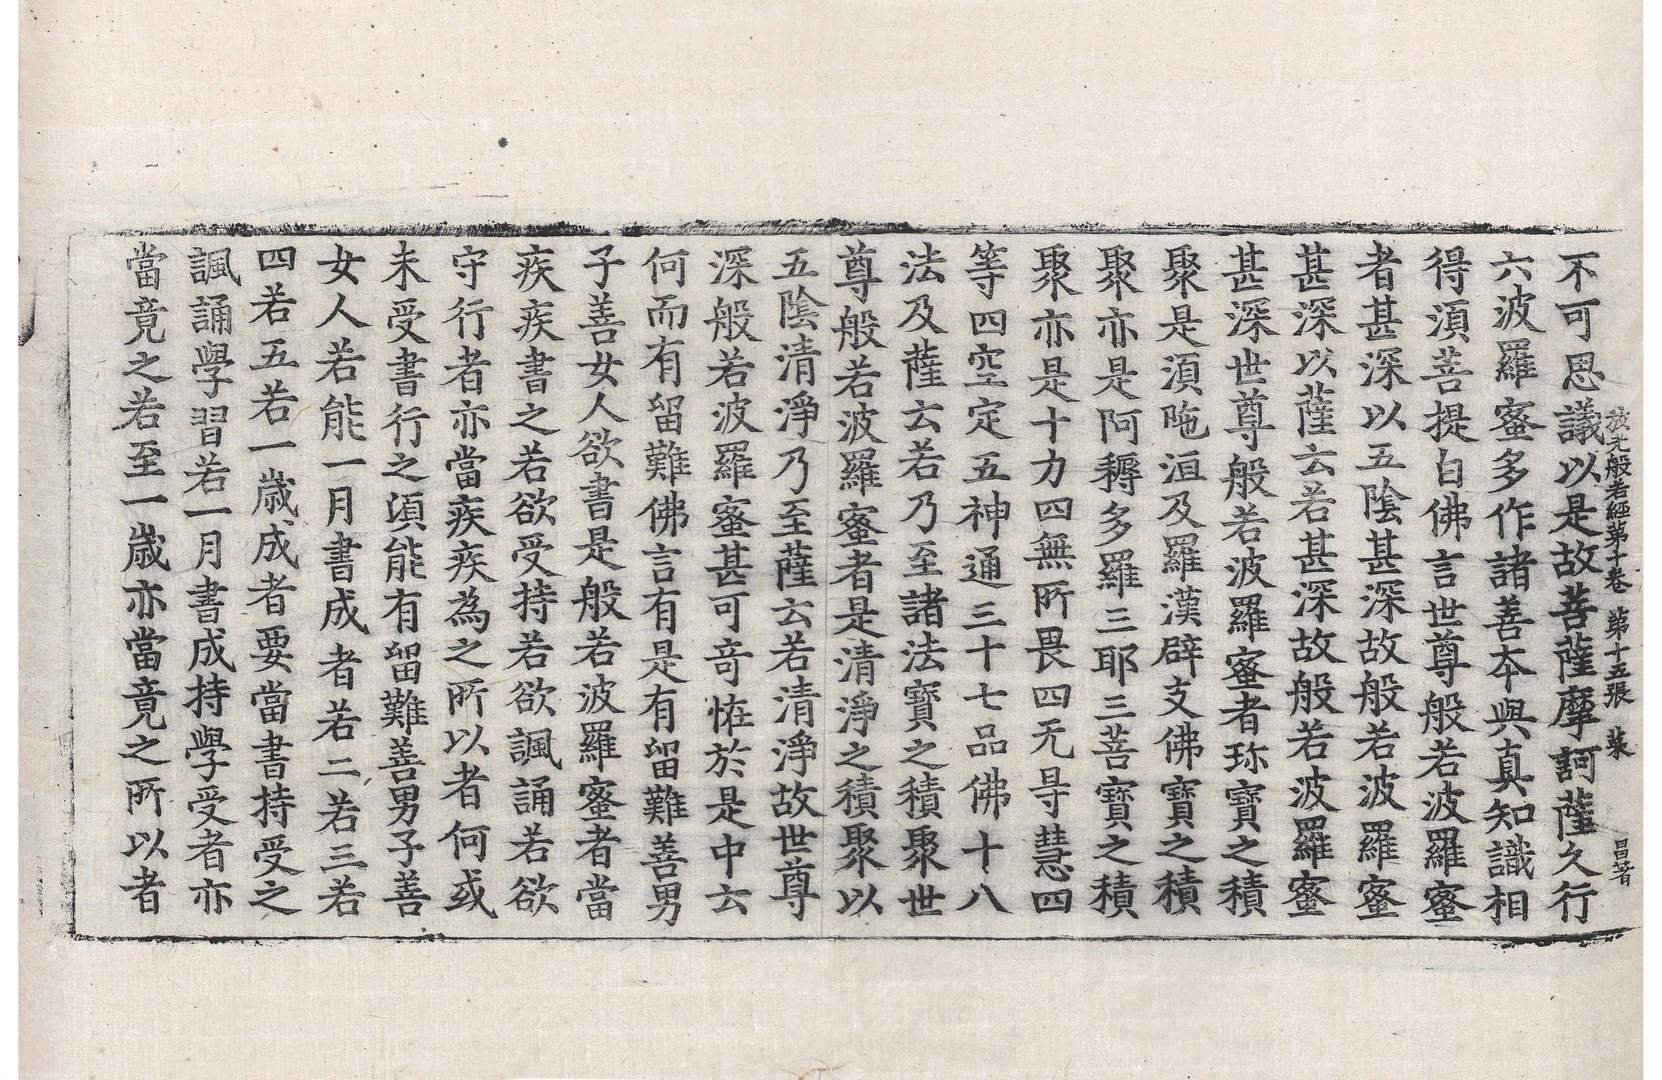 放光般若經第十卷　第十五張　菜　昌著
不可思議以是故菩薩摩訶薩久行
六波羅蜜多作諸善本與真知識相
得湏菩提白佛言世尊般若波羅蜜
者甚深以五陰甚深故般若波羅蜜
甚深以薩云若甚深故般若波羅蜜
甚深世尊般若波羅蜜者珎寶之積
聚是湏陁洹及羅漢辟支佛寶之積
聚亦是阿耨多羅三耶三菩寶之積
聚亦是十力四無所畏四无㝵慧四
等四空定五神通三十七品佛十八
法及薩云若乃至諸法寶之積聚世
尊般若波羅蜜者是清淨之積聚以
五陰清淨乃至薩云若清淨故世尊
深般若波羅蜜甚可竒恠於是中云
何而有留難佛言有是有留難善男
子善女人欲書是般若波羅蜜者當
疾疾書之若欲受持若欲諷誦若欲
守行者亦當疾疾為之所以者何或
未受書行之湏能有留難善男子善
女人若能一月書成者若二若三若
四若五若一歲成者要當書持受之
諷誦學習若一月書成持學受者亦
當竟之若至一歲亦當竟之所以者